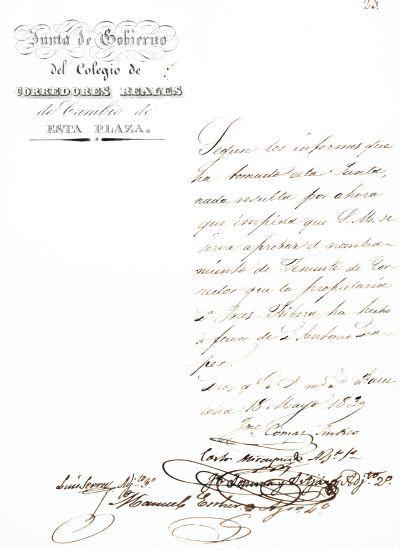 23.
Junta de Gobierno
del Colegio de
CORREDORES REALES
de Cambio de
ESTA PLAZA.
Segun los informes que
ha tomado esta Junta,
nada resulta por ahora
que impida que S. M. se
sirva aprobar el nombra-
miento de Teniente de Cor-
redor que la propietaria
Dª Ines Ribera ha hecho
á favor de D. Antonio
Dios gª á V. mˢ aˢ Barce-
lona 18 Mayo 1839
Comas Sindico
Adjto 1º
Adjto 2º
Luis Adjto 3º
Manuel Adjto 4º